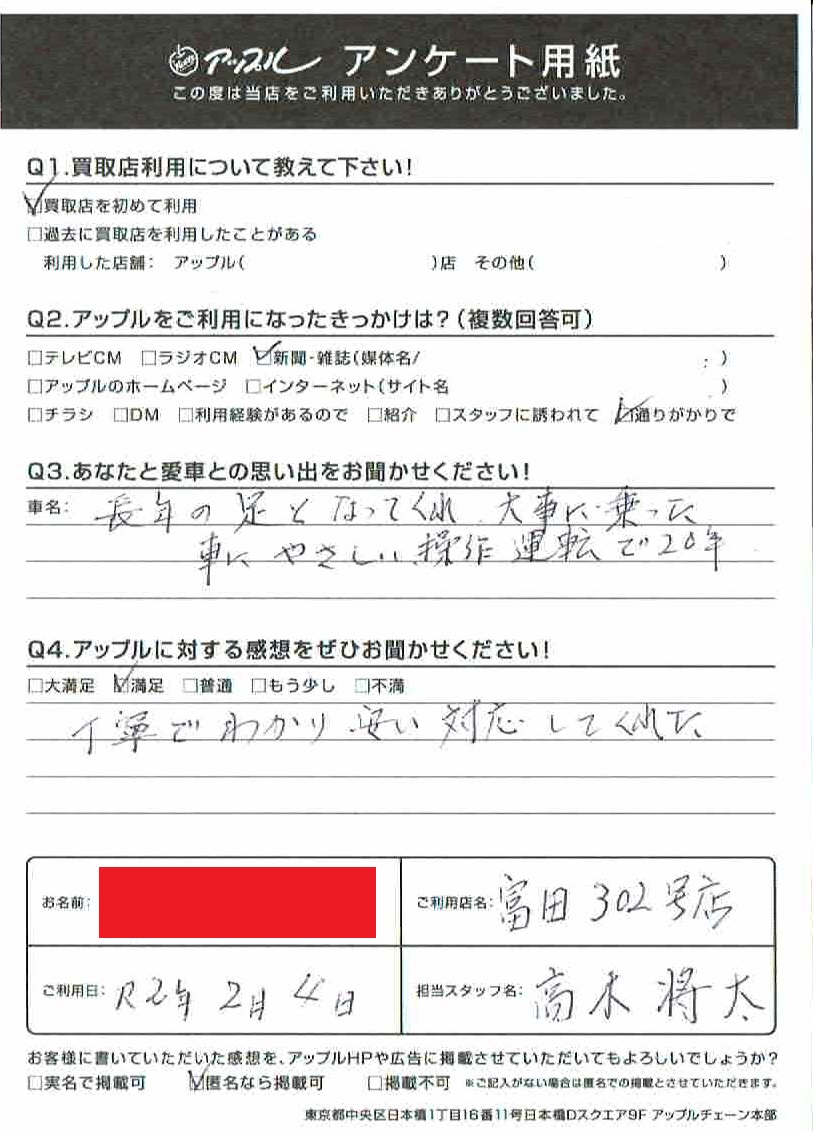 アップル アンケート用紙
この度は当店をご利用いただきありがとうございました。
Q1.買取店利用について教えて下さい!
☑買取店を初めて利用
□過去に買取店を利用したことがある
利用した店舗: アップル( )店 その他( )
Q2.アップルをご利用になったきっかけは?(複数回答可)
□テレビCM □ラジオCM ☑新聞・雑誌(媒体名/ )
□アップルのホームページ □インターネット(サイト名 )
□チラシ □DM □利用経験があるので □紹介 □スタッフに誘われて ☑通りがかりで
Q3.あなたと愛車との思い出をお聞かせください!
車名: 長年の足となってくれ 大事に乗った
車にやさしい操作運転で20年
Q4.アップルに対する感想をぜひお聞かせください!
□大満足 ☑満足 □普通 □もう少し □不満
丁寧でわかり安い対応してくれた
お名前:
ご利用店名: 富田302号店
ご利用日: R2年2月4日
担当スタッフ名: 高木将太
お客様に書いていただいた感想を、アップルHPや広告に掲載させていただいてもよろしいでしょうか?
□実名で掲載可 ☑匿名なら掲載可 □掲載不可 ※ご記入がない場合は匿名での掲載とさせていただきます。
東京都中央区日本橋1丁目16番11号日本橋Dスクエア9F アップルチェーン本部